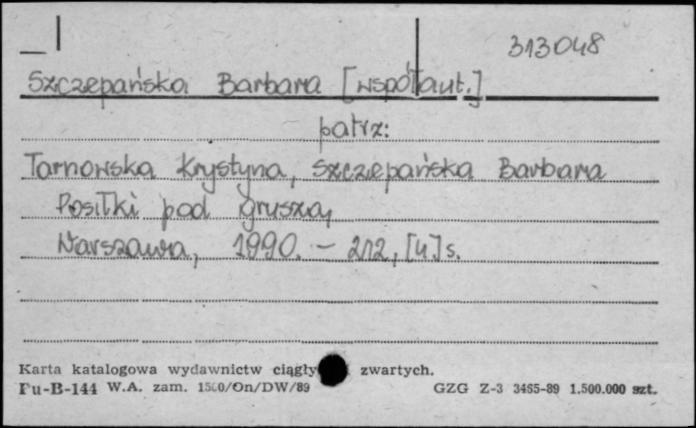 313048
Szczepańska Barbara [współaut.]
patrz:
Tarnowska Krystyna, Szczepańska Barbara
Posiłki pod gruszą,
Warszawa, 1990. – 212, [4] s.
Karta katalogowa wydawnictw ciągły zwartych.
Pu-B-144 W.A. zam. 1500/On/DW/89 GZG Z-3 3485-89 1.500.000 szt.